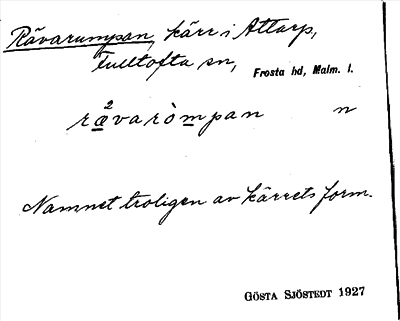 Rävarumpan, kärr i Attarp,
Fulltofta sn,
Frosta hd, Malm. l.
ræ²varòmpan n
Namnet troligen av kärrets form.
GÖSTA SJÖSTEDT 1927